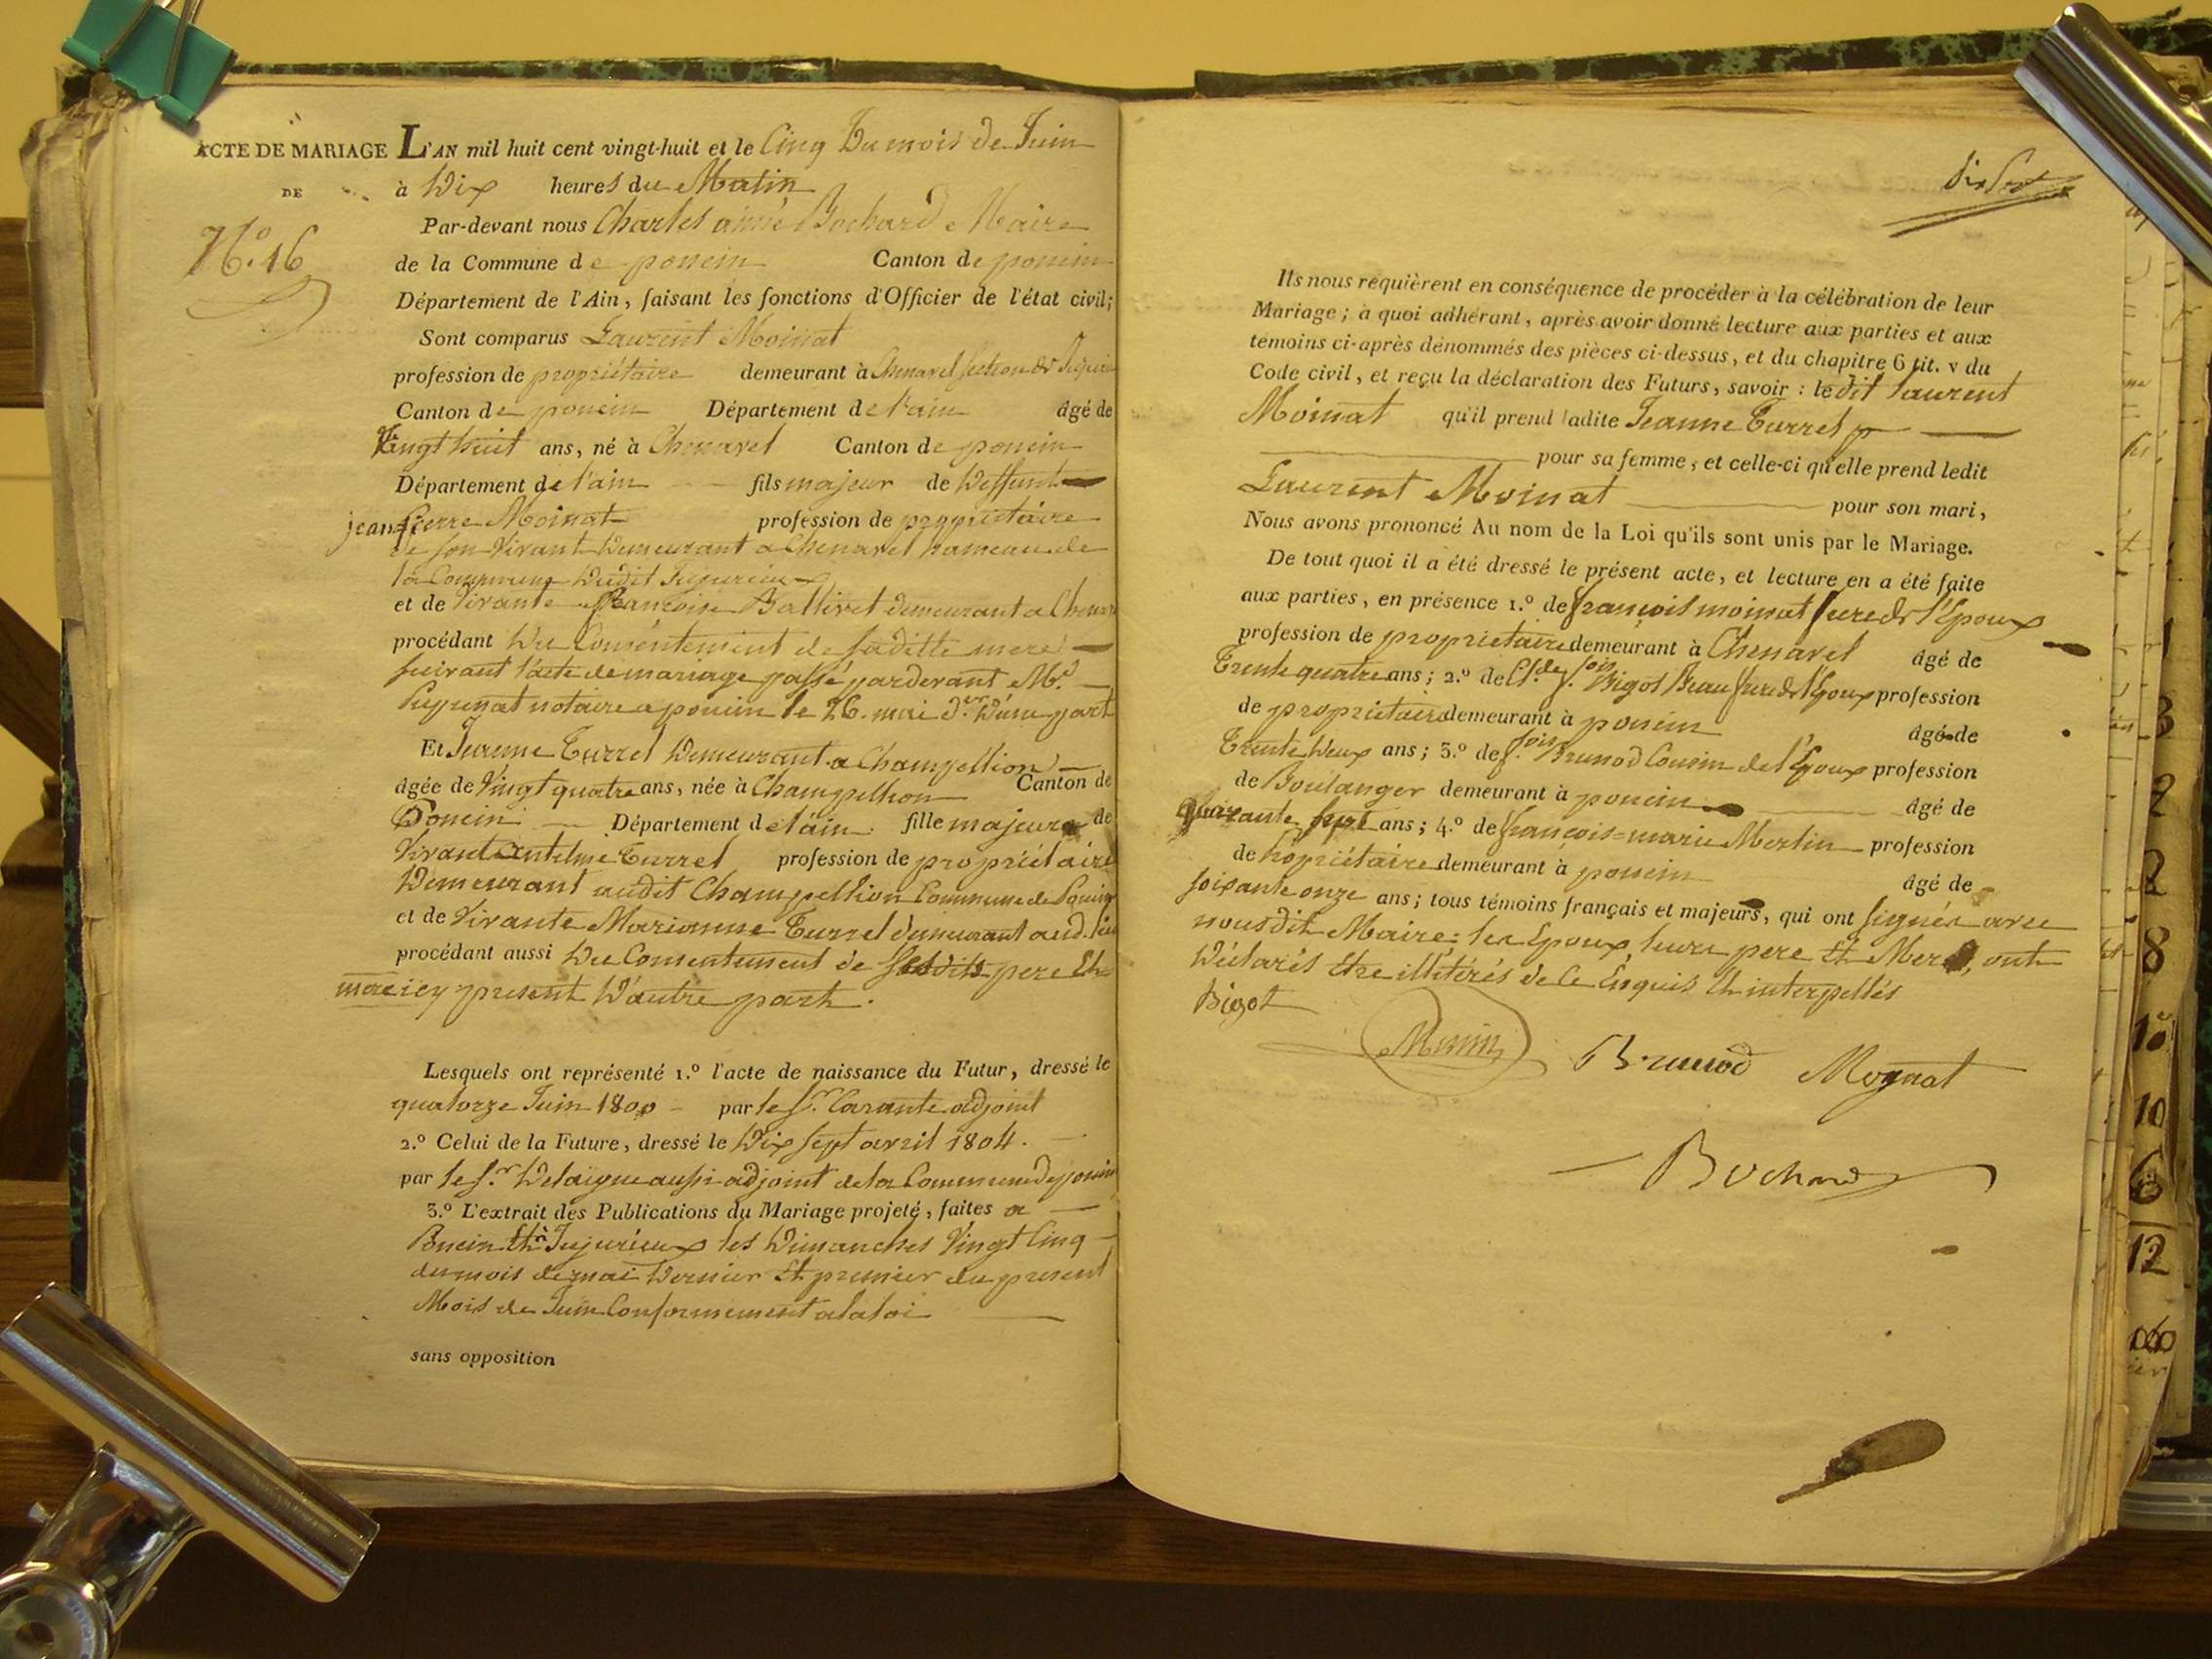 ACTE DE MARIAGE L'AN mil huit cent vingt-huit et le Cinq Du mois de Juin
DE à Dix heures du Matin
N.º 16
Par-devant nous Charles aimé Bochard Maire
de la Commune de poncin Canton de poncin
Département de l'Ain, faisant les fonctions d'Officier de l'état civil;
Sont comparus Laurent Moinat
profession de propriétaire demeurant à Chenavel section de
Canton de poncin Département de l'ain âgé de
Vingt huit ans, né à Chenavel Canton de poncin
Département de l'ain fils majeur de Deffunt
jean pierre Moinat profession de propriétaire
de son Vivant Demeurant a Chenavel hameau de
la Commune Dudit Jujurieux
et de Vivante françoise Ballivet demeurant a
procédant Du Consentement de saditte mere
suivant l'acte de mariage passé pardevant Me.
notaire a poncin le 26. mai d.er D'une part
Et Jeanne Turrel Demeurant a Champellion
âgée de Vingt quatre ans, née à Champellion Canton de
Poncin Département de l'ain fille majeure de
Vivant antelme Turrel profession de propriétaire
Demeurant audit Champellion Commune de Poncin
et de Vivante Marianne Turrel demeurant aud. lieu
procédant aussi Du Consentement de sesdits pere Et
mere icy present D'autre part.
Lesquels ont représenté 1.º l'acte de naissance du Futur, dressé le
quatorze Juin 1800 par le Sr. adjoint
2.º Celui de la Future, dressé le Dix sept avril 1804.
par le Sr. Delaigue aussi adjoint de la Commune de poncin
3.º L'extrait des Publications du Mariage projeté, faites a
Poncin Et à Jujurieux les Dimanches Vingt Cinq
du mois de mai Dernier Et premier du present
Mois de Juin Conformement a la loi
sans opposition
Ils nous requièrent en conséquence de procéder à la célébration de leur
Mariage; à quoi adhérant, après avoir donné lecture aux parties et aux
témoins ci-après dénommés des pièces ci-dessus, et du chapitre 6 tit. v du
Code civil, et reçu la déclaration des Futurs, savoir : le dit laurent
Moinat qu'il prend ladite Jeanne Turrel
pour sa femme, et celle-ci qu'elle prend ledit
Laurent Moinat pour son mari,
Nous avons prononcé Au nom de la Loi qu'ils sont unis par le Mariage.
De tout quoi il a été dressé le présent acte, et lecture en a été faite
aux parties, en présence 1.º de françois moinat frere de l'Epoux
profession de propriétaire demeurant à Chenavel âgé de
Trente quatre ans; 2.º de Cl.de f.ois Bigot Beau frere de l'Epoux profession
de propriétaire demeurant à poncin âgé de
Trente Deux ans; 3.º de f.ois Brunod Cousin de l'Epoux profession
de Boulanger demeurant à poncin âgé de
quarante sept ans; 4.º de françois=marie Merlin profession
de Propriétaire demeurant à poncin âgé de
soixante onze ans; tous témoins français et majeurs, qui ont signés avec
nousdit Maire: les Epoux, leurs pere Et Mere, ont
Déclarés Etre illétérés de Ce Enquis Et interpellés
Bigot
Brunod Moynat
Bochard